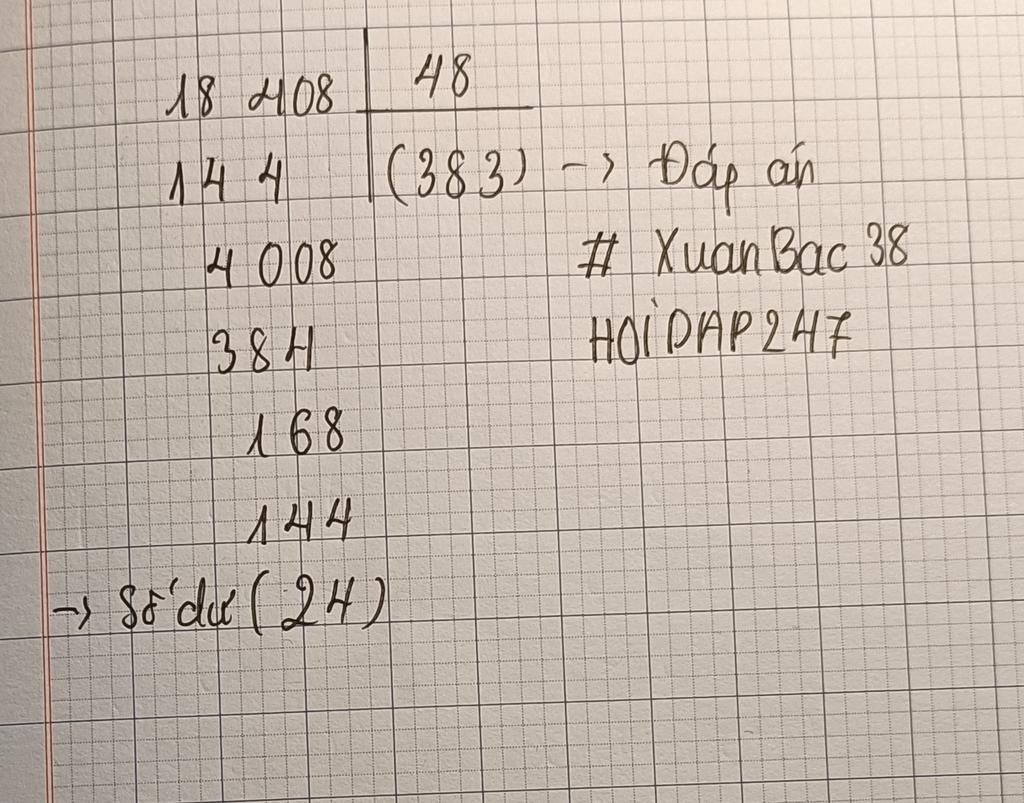 18 408 48
144 (383) -> Đáp án
4 008 # XuanBac 38
384 HOIDAP247
168
144
-> Số dư (24)